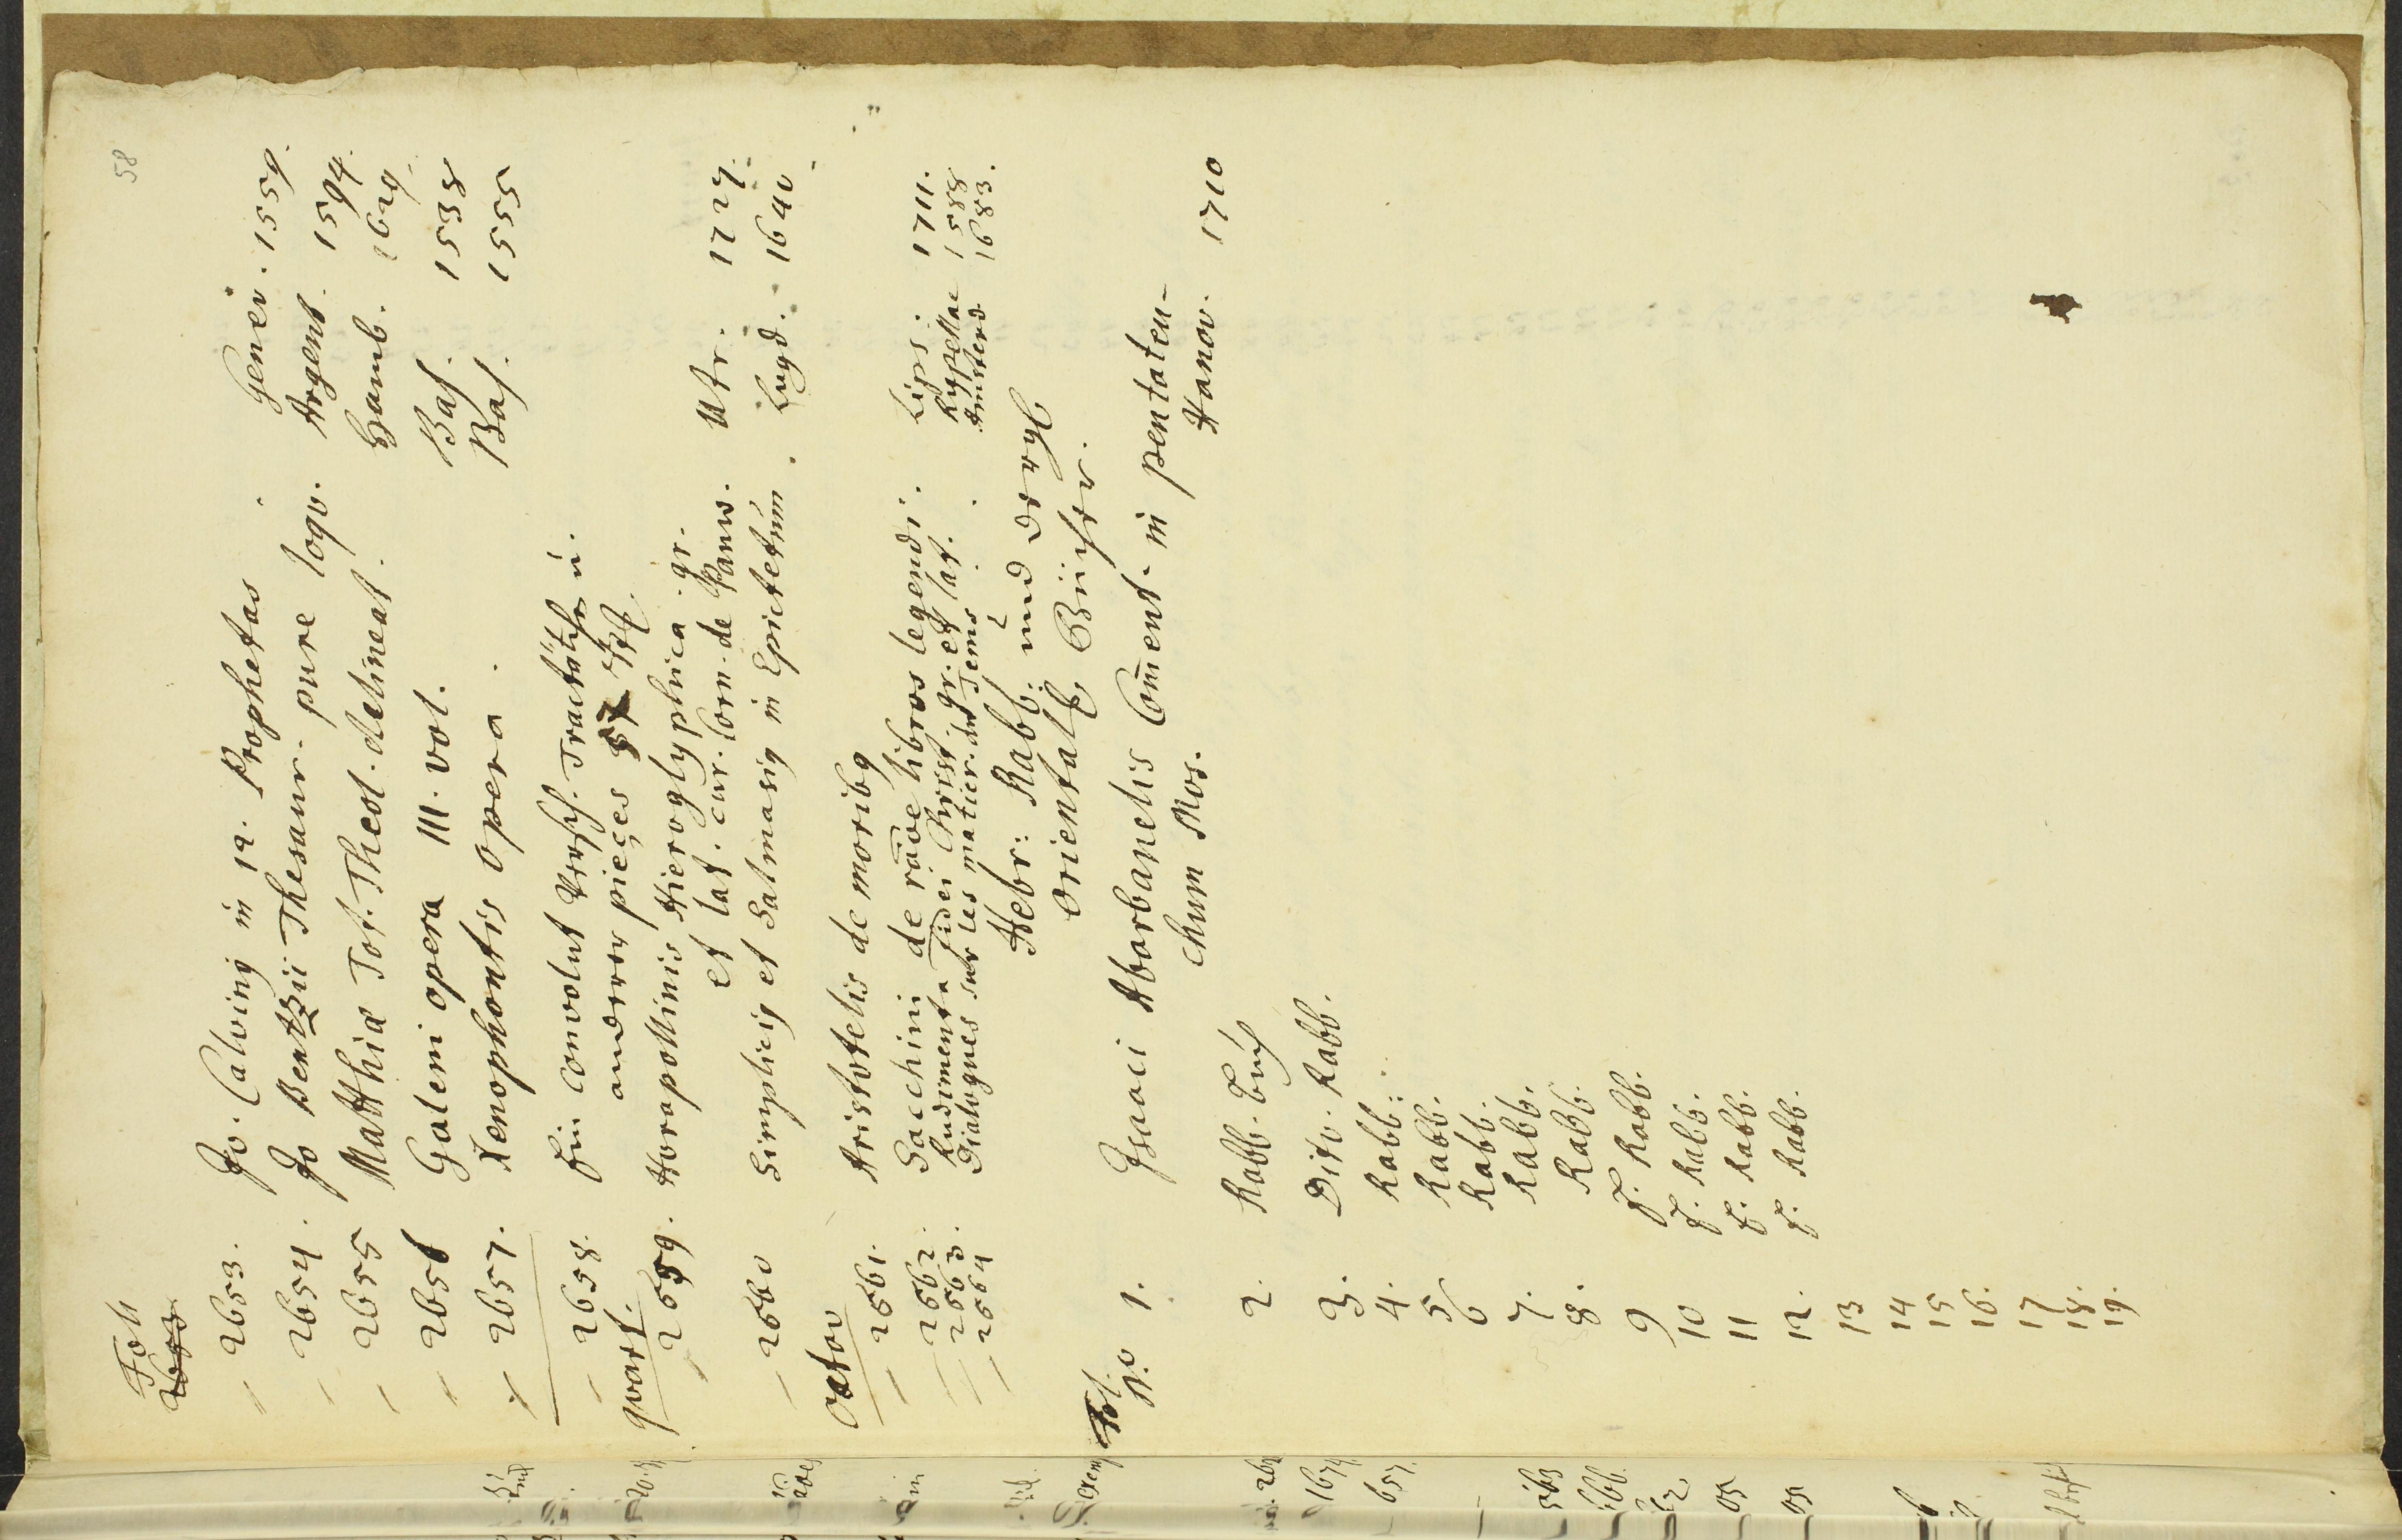 58
Fol.
2653. Jo. Calvinq in 12. Prophetas Genev. 1559.
2654. Jo Bentzii Thesaur. pure loqv. Argent. 1594.
2655 Matthiæ Theol. delineat. Hamb. 1629.
2656 Galeni opera III. vol. Bas. 1538
2657. Xenophontis opera. Bas. 1555
2658. Ein Convolut Tractätchen u.
anderer pieçes
qvart.
2659. Horapollinis Hieroglyphica. gr.
et lat. cur. Corn. de Pauw. Utr. 1727.
2660 Simpliciq et Salmasiq in Epictetum. Lugd. 1640.
Octav
2661. Aristotelis de moribq
2662. Sacchini de raõe libros legendi. Lips. 1711.
2663. Rudimenta fidei Christ. gr. et lat. Rupellae 1588
2664 Dialogues sur les matier. du Tems. Amsterd 1683.
Hebr: Rabb: und dergl
Orientalh Bücher.
Fol.
No 1. Isaaci Abarbanelis Com̃ent. in pentateu-
chum Mos. Hanov. 1710
2. Rabb. Buch
3. Dito. Rabb.
4. Rabb:
5 Rabb.
6 Rabb.
7. Rabb.
8. Rabb.
9 F. Rabb.
10 F. Rabb.
11 F. Rabb.
12. F. Rabb.
13
14
15
16.
17
18.
19.